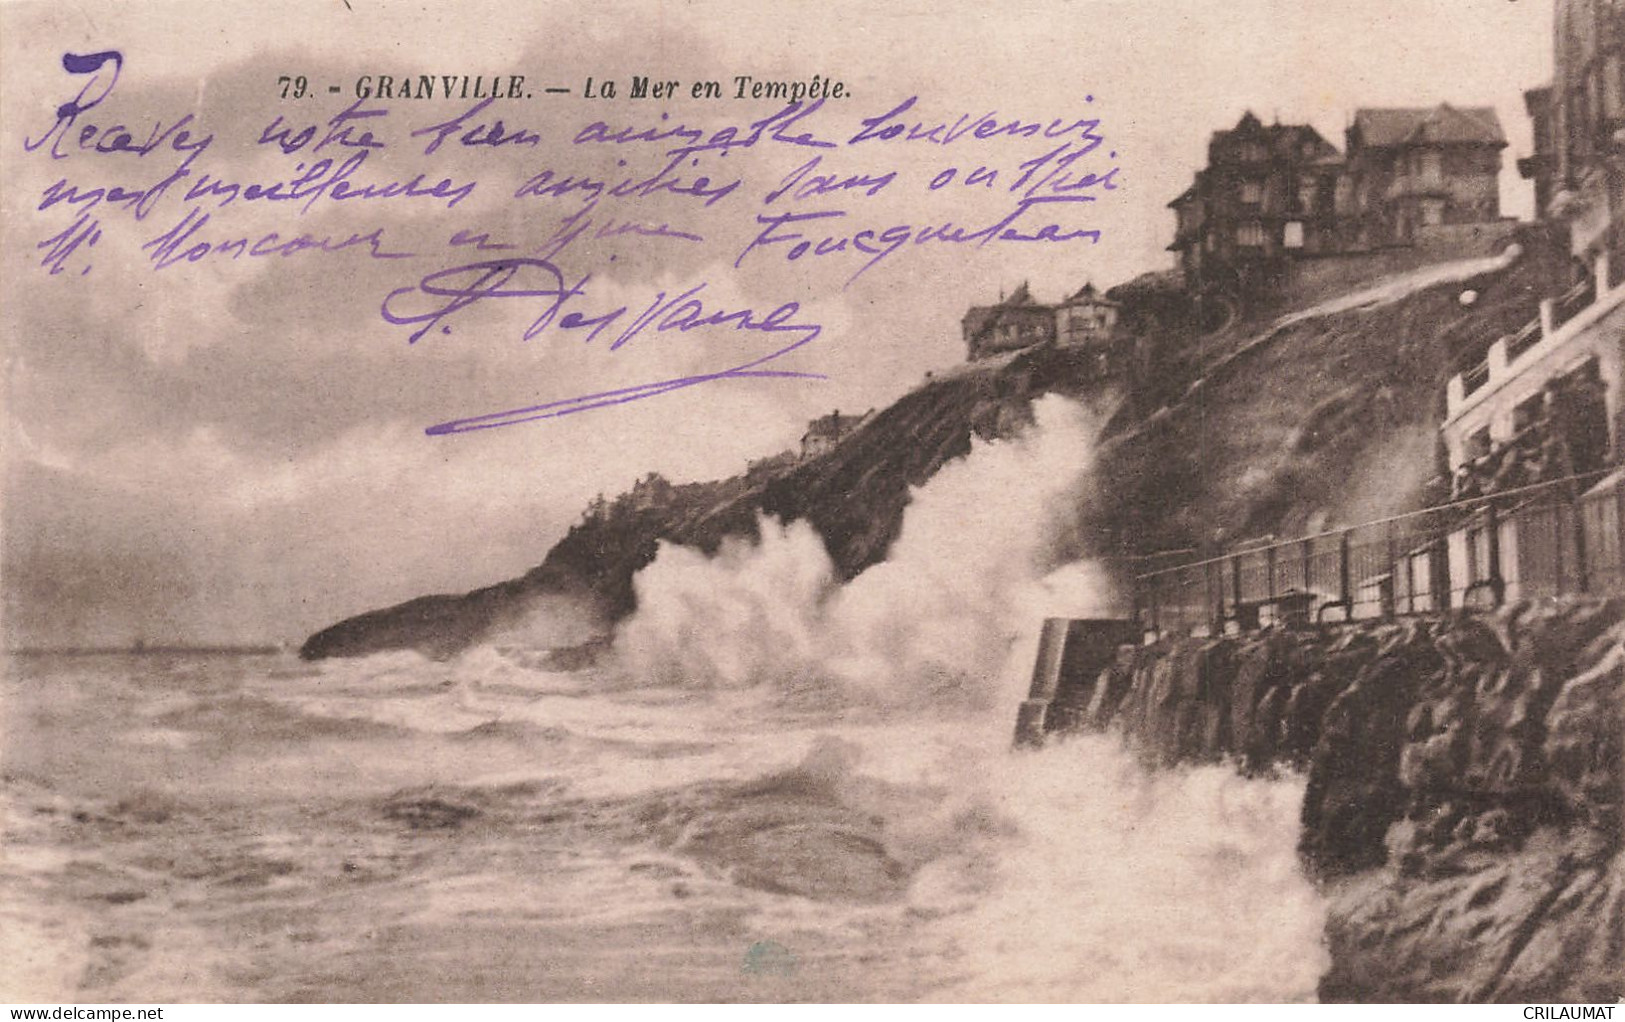 79. - GRANVILLE. — La Mer en Tempête.
Recevez notre bien aimable souvenir
mes meilleures amitiés sans oublier
M. Moncour et Mme Foucqueteau
Desvanne
www.delcampe.net
CRILAUMAT